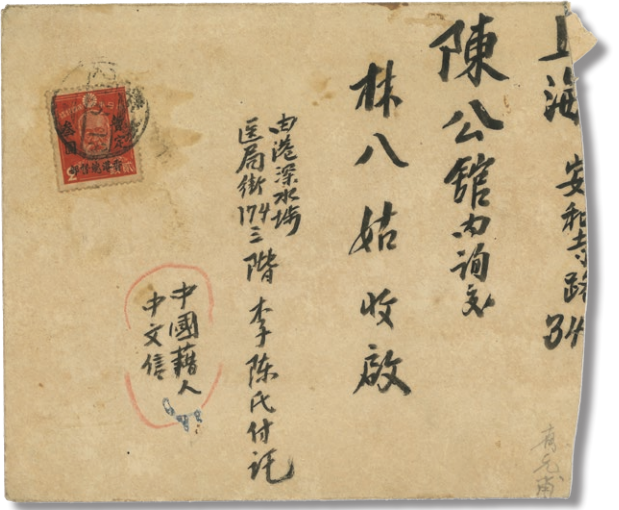 上海 安和寺路34
陳公館內詢交
林八姑收啟
由港深水埗
医局街174三階 李陈氏付託
中國藉人
中文信